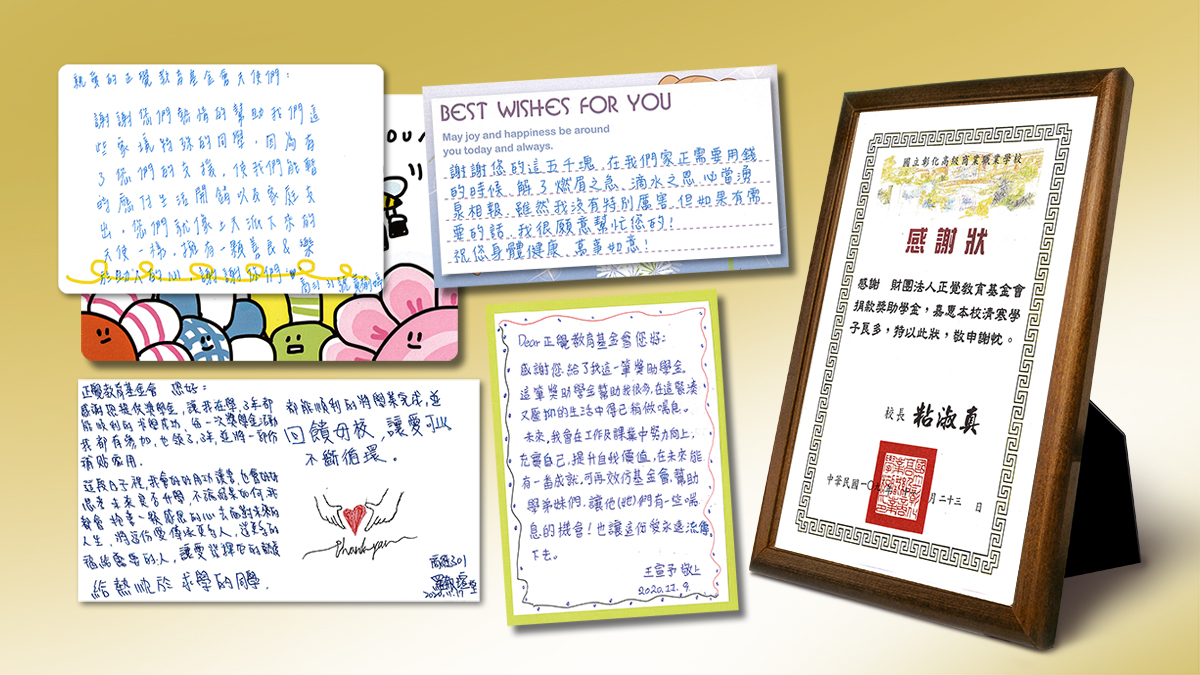 親愛的正覺教育基金會天使們：
謝謝您們熱情的幫助我們這
些家境特殊的同學，因為有
了您們的支援，使我們能輕
的應付生活開銷以及家庭支
出。您們就像上天派下來的
天使一樣。擁有一顆善良&樂
於助人的心，謝謝你們
YOU
BEST WISHES FOR YOU
May joy and happiness be around
you today and always.
謝謝您的這五千塊，在我們家正需要用錢
的時候，解了燃眉之急，滴水之恩必當湧
泉相報，雖然我沒有特別厲害，但如果有需
要的話，我很願意幫忙您的！
祝您身體健康，萬事如意！
正覺教育基金會 您好：
感謝您提供獎學金，讓我在學3年都
能順利的求學成功，每一次獎學金活動
我都有參加，也領了3年並將一部份
補貼家用。
這段日子裡，我會好好用功讀書，也會好好
思考未來是否升學，不論結果如何，我
都會抱著一顆感恩的心去面對未來的
人生，將這份愛傳承更多人，
給需要的人，讓愛
給熱忱於求學的同學。
都能順利的將學業完成，並
回饋母校，讓愛可以
不斷循環。
Thank you
Dear 正覺教育基金會您好：
感謝您給了我這一筆獎助學金。
這筆獎助學金幫助我很多，在這緊湊
又壓抑的生活中得已稍做喘息。
未來，我會在工作及課業中努力向上，
充實自己，提升自我價值，在未來能
有一番成就，可再效仿基金會，幫助
學弟妹們，讓他(她)們有一些喘
息的機會！也讓這份愛永遠流傳
下去。
王宣予 敬上
2020.12.9.
國立彰化高級商業職業學校
感謝狀
感謝 財團法人正覺教育基金會
捐款獎助學金，嘉惠本校清寒學
子良多，特以此狀，敬申謝忱。
校長 粘淑真
中華民國一０九年 月二十三日